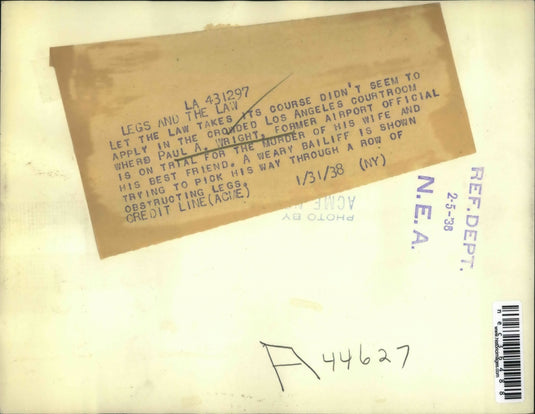 LA 431297
LEGS AND THE LAW
LET THE LAW TAKES ITS COURSE DIDN'T SEEM TO
APPLY IN THE CROWDED LOS ANGELES COURTROOM
WHERE PAUL A. WRIGHT, FORMER AIRPORT OFFICIAL
IS ON TRIAL FOR THE MURDER OF HIS WIFE AND
HIS BEST FRIEND. A WEARY BAILIFF IS SHOWN
TRYING TO PICK HIS WAY THROUGH A ROW OF
OBSTRUCTING LEGS.
CREDIT LINE(ACME) 1/31/38 (NY)
PHOTO BY
ACME
REF. DEPT.
2-5-38
N.E.A.
A44627